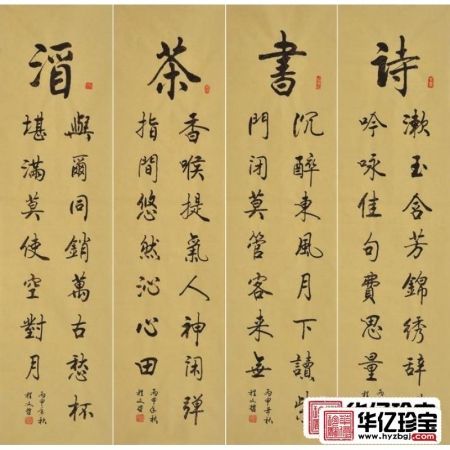 诗
漱玉含芳錦綉辞
吟咏佳句費思量
書
沉醉東風月下讀
門闭莫管客来無
丙申年秋
茶
香喉提氣人神闲彈
指間悠然沁心田
丙申年秋
酒
與爾同銷萬古愁杯
堪滿莫使空對月
丙申年秋
华亿珍宝
www.hyzbgj.com